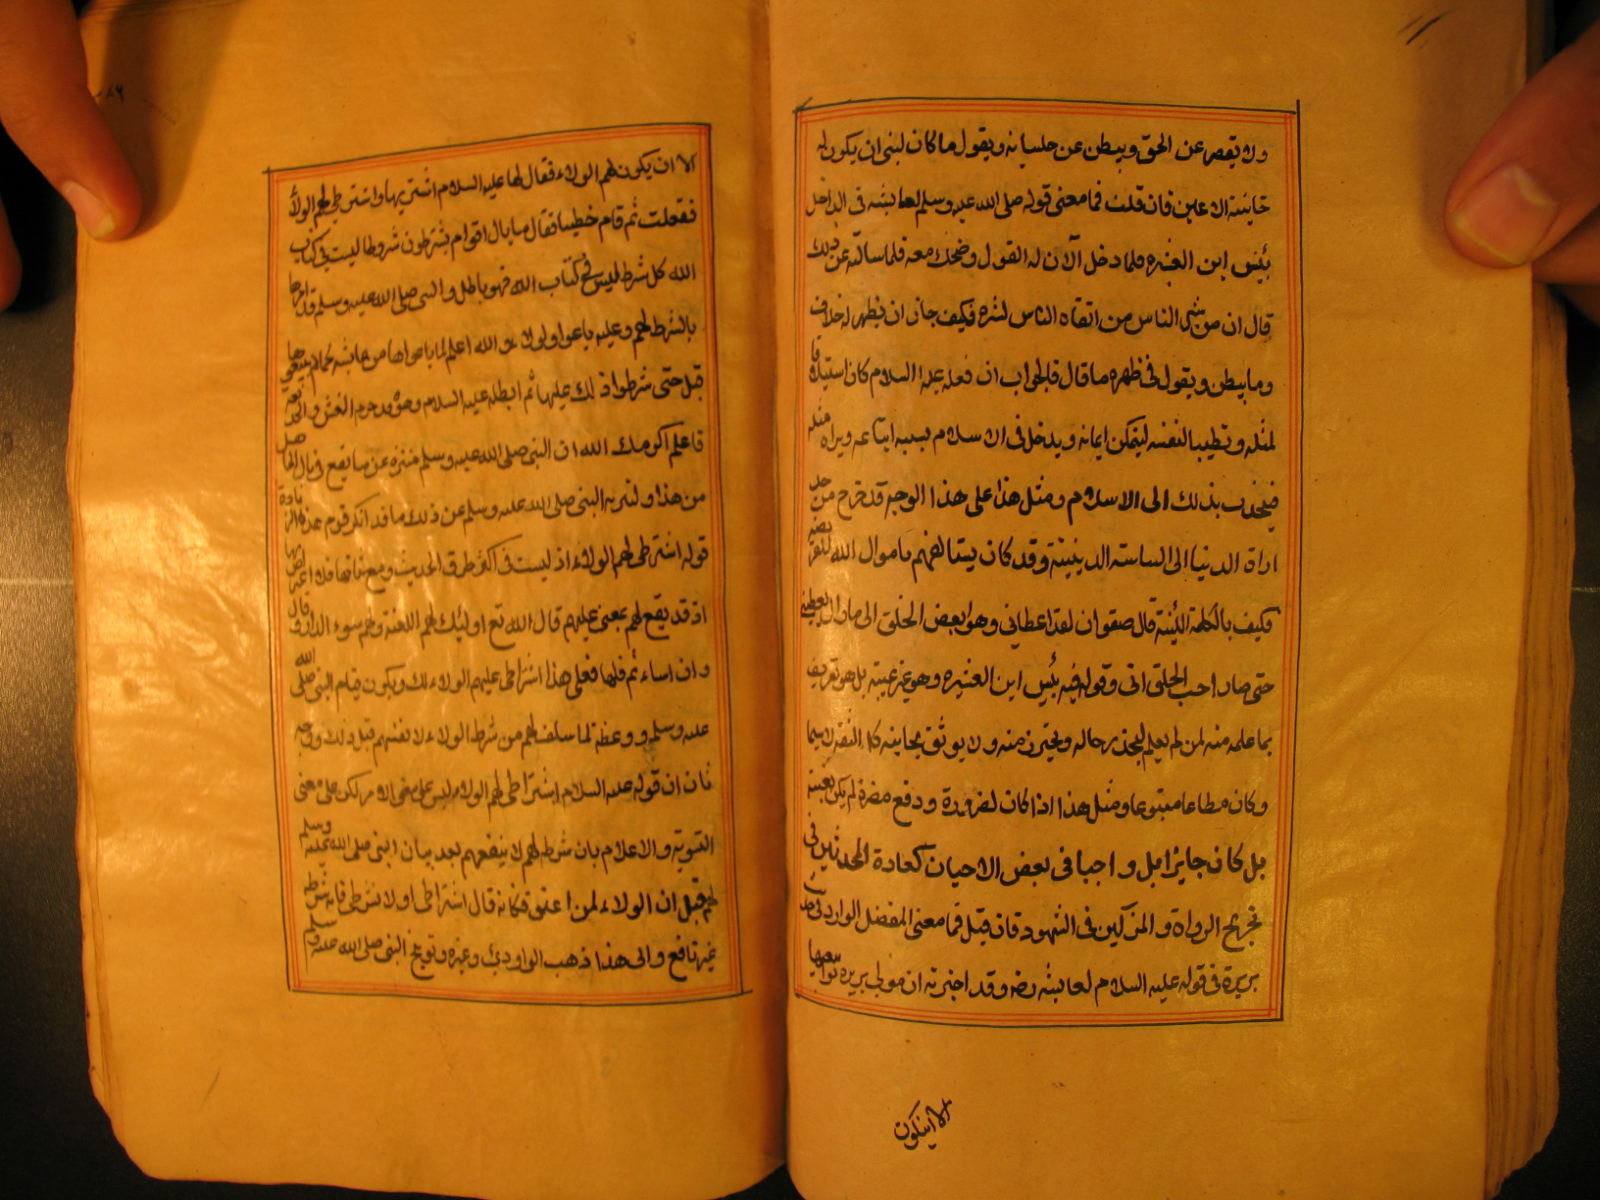 ولا يقصر عن الحق ويبطن عن جلسايه ويقول ما كان لبنى ان يكون له
خاينة الاعين فان قلت فما معنى قوله صلى الله عليه وسلم لعايشه فى الداخل
بئس ابن العشيره فلما دخل الآن له القول وضحك معه فلما سالته عن ذلك
قال ان من شر الناس من اتقاه الناس لشره فكيف جاز ان يظهر له خلاف
وما يبطن ويقول فى ظهره ما قال فالجواب ان فعله عليه السلام كان استيلافا
لمثله وتطييبا لنفسه ليتمكن ايمانه ويدخل فى الاسلام بسببه اتباعه ويراه مثله
فينجذب بذلك الى الاسلام ومثل هذا على هذا الوجه قد خرج من حد
اداة الدنيا الى السياسه الدينية وقد كان يستالفهم باموال الله العريضه
فكيف بالكلمة اللينة قال صفوان لقد اعطانى وهو ابغض الخلق الى فما زال يعطينى
حتى صار احب الخلق الى وقوله فيه بئس ابن العشيره وهو غير غيبة بل هو تعريف
بما علمه منه لمن لم يعلم ليحذر حاله ويحترز منه ولا يوثق بجانبه كل الثقه لا سيما
وكان مطاعا متبوعا ومثل هذا اذا كان لضرورة ودفع مضرة لم يكن بغيبة
بل كان جايزا بل واجبا فى بعض الاحيان كعادة المحدثين فى
تجريح الرواة والمزكين فى الشهود فان قيل فما معنى المفضل الوارد فى حديث
بريرة فى قوله عليه السلام لعايشه رضه وقد اخبرته ان موالى بريره ابوا بيعها
الا ان يكون
الا ان يكون لهم الولاء فقال لها عليه السلام اشتريها واشترطى لهم الولاء
ففعلت ثم قام خطيبا فقال ما بال اقوام يشترطون شروطا ليست فى كتاب
الله كل شرط ليس فى كتاب الله فهو باطل والنبى صلى الله عليه وسلم قد امرها
بالشرط لهم وعليه باعوا ولولاه والله اعلم لما باعوها من عايشه كما لم يبيعوها
قبل حتى شرطوا ذلك عليها ثم ابطله عليه السلام وهو قد حرم الغش والخديعة
فاعلم اكرمك الله ان النبى صلى الله عليه وسلم منزه عن ما يقع فى بال الجاهل
من هذا ولتنزيه النبى صلى الله عليه وسلم عن ذلك ما قد انكر قوم هذه الزيادة
قوله اشترطى لهم الولاء اذ ليست فى اكثر طرق الحديث ومع ثباتها فلا اعتراض بها
اذ قد يقع لهم بمعنى عليهم قال الله تع اوليك لهم اللعنة ولهم سوء الدار وقال
وان اساءتم فلها فعلى هذا اشترطى عليهم الولاء لك ويكون قيام النبى صلى الله
عليه وسلم ووعظه لما سلف لهم من شرط الولاء لانفسهم قبل ذلك ووجه
ثان ان قوله عليه السلام اشترطى لهم الولاء ليس على معنى الامر لكن على معنى
التسوية والاعلام بان شرطه لهم لا ينفعهم بعد بيان النبى صلى الله عليه وسلم
لهم قبل ان الولاء لمن اعتق فكانه قال اشترطى او لا تشترطى فانه شرط
غير نافع والى هذا ذهب الداودى وغيره وتوبيخ النبى صلى الله عليه وسلم